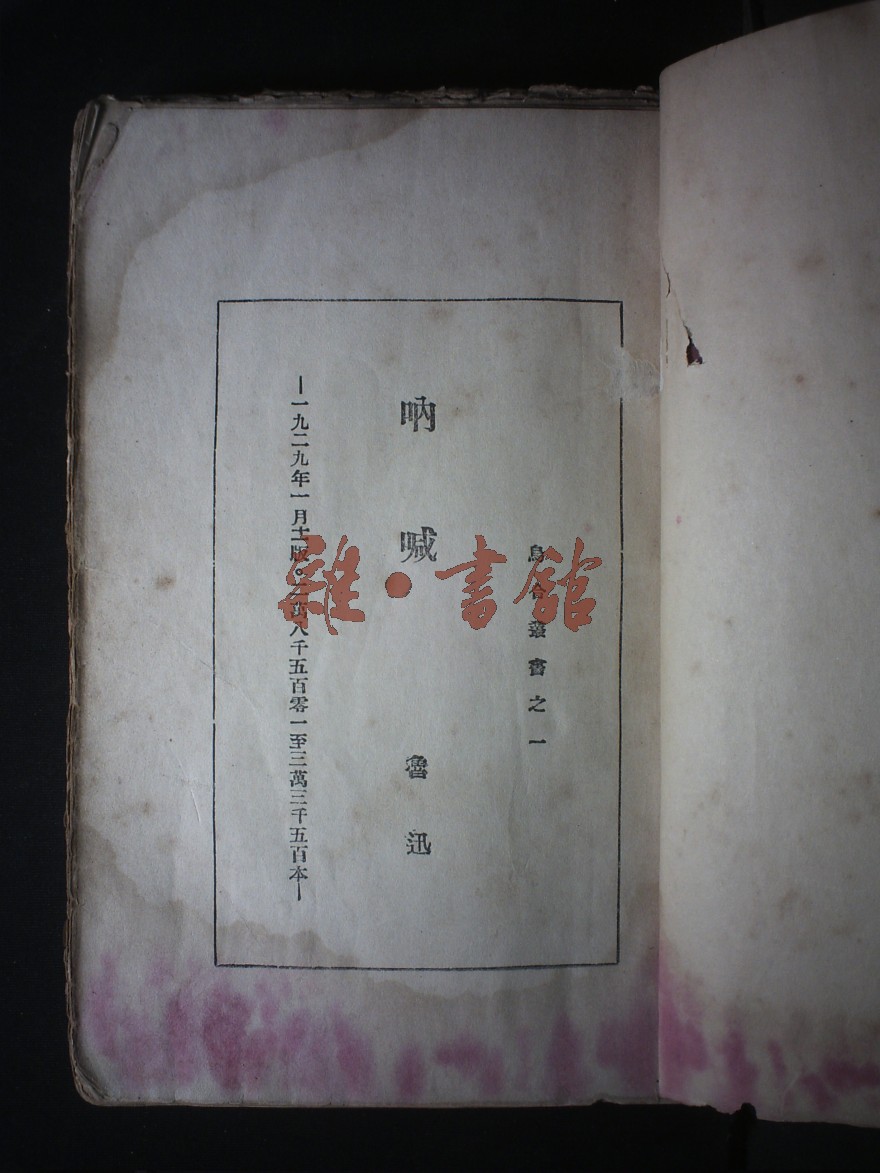 烏合叢書之一
吶喊 魯迅
—一九二九年一月十一版。二萬八千五百零一至三萬三千五百本—
雜·書館